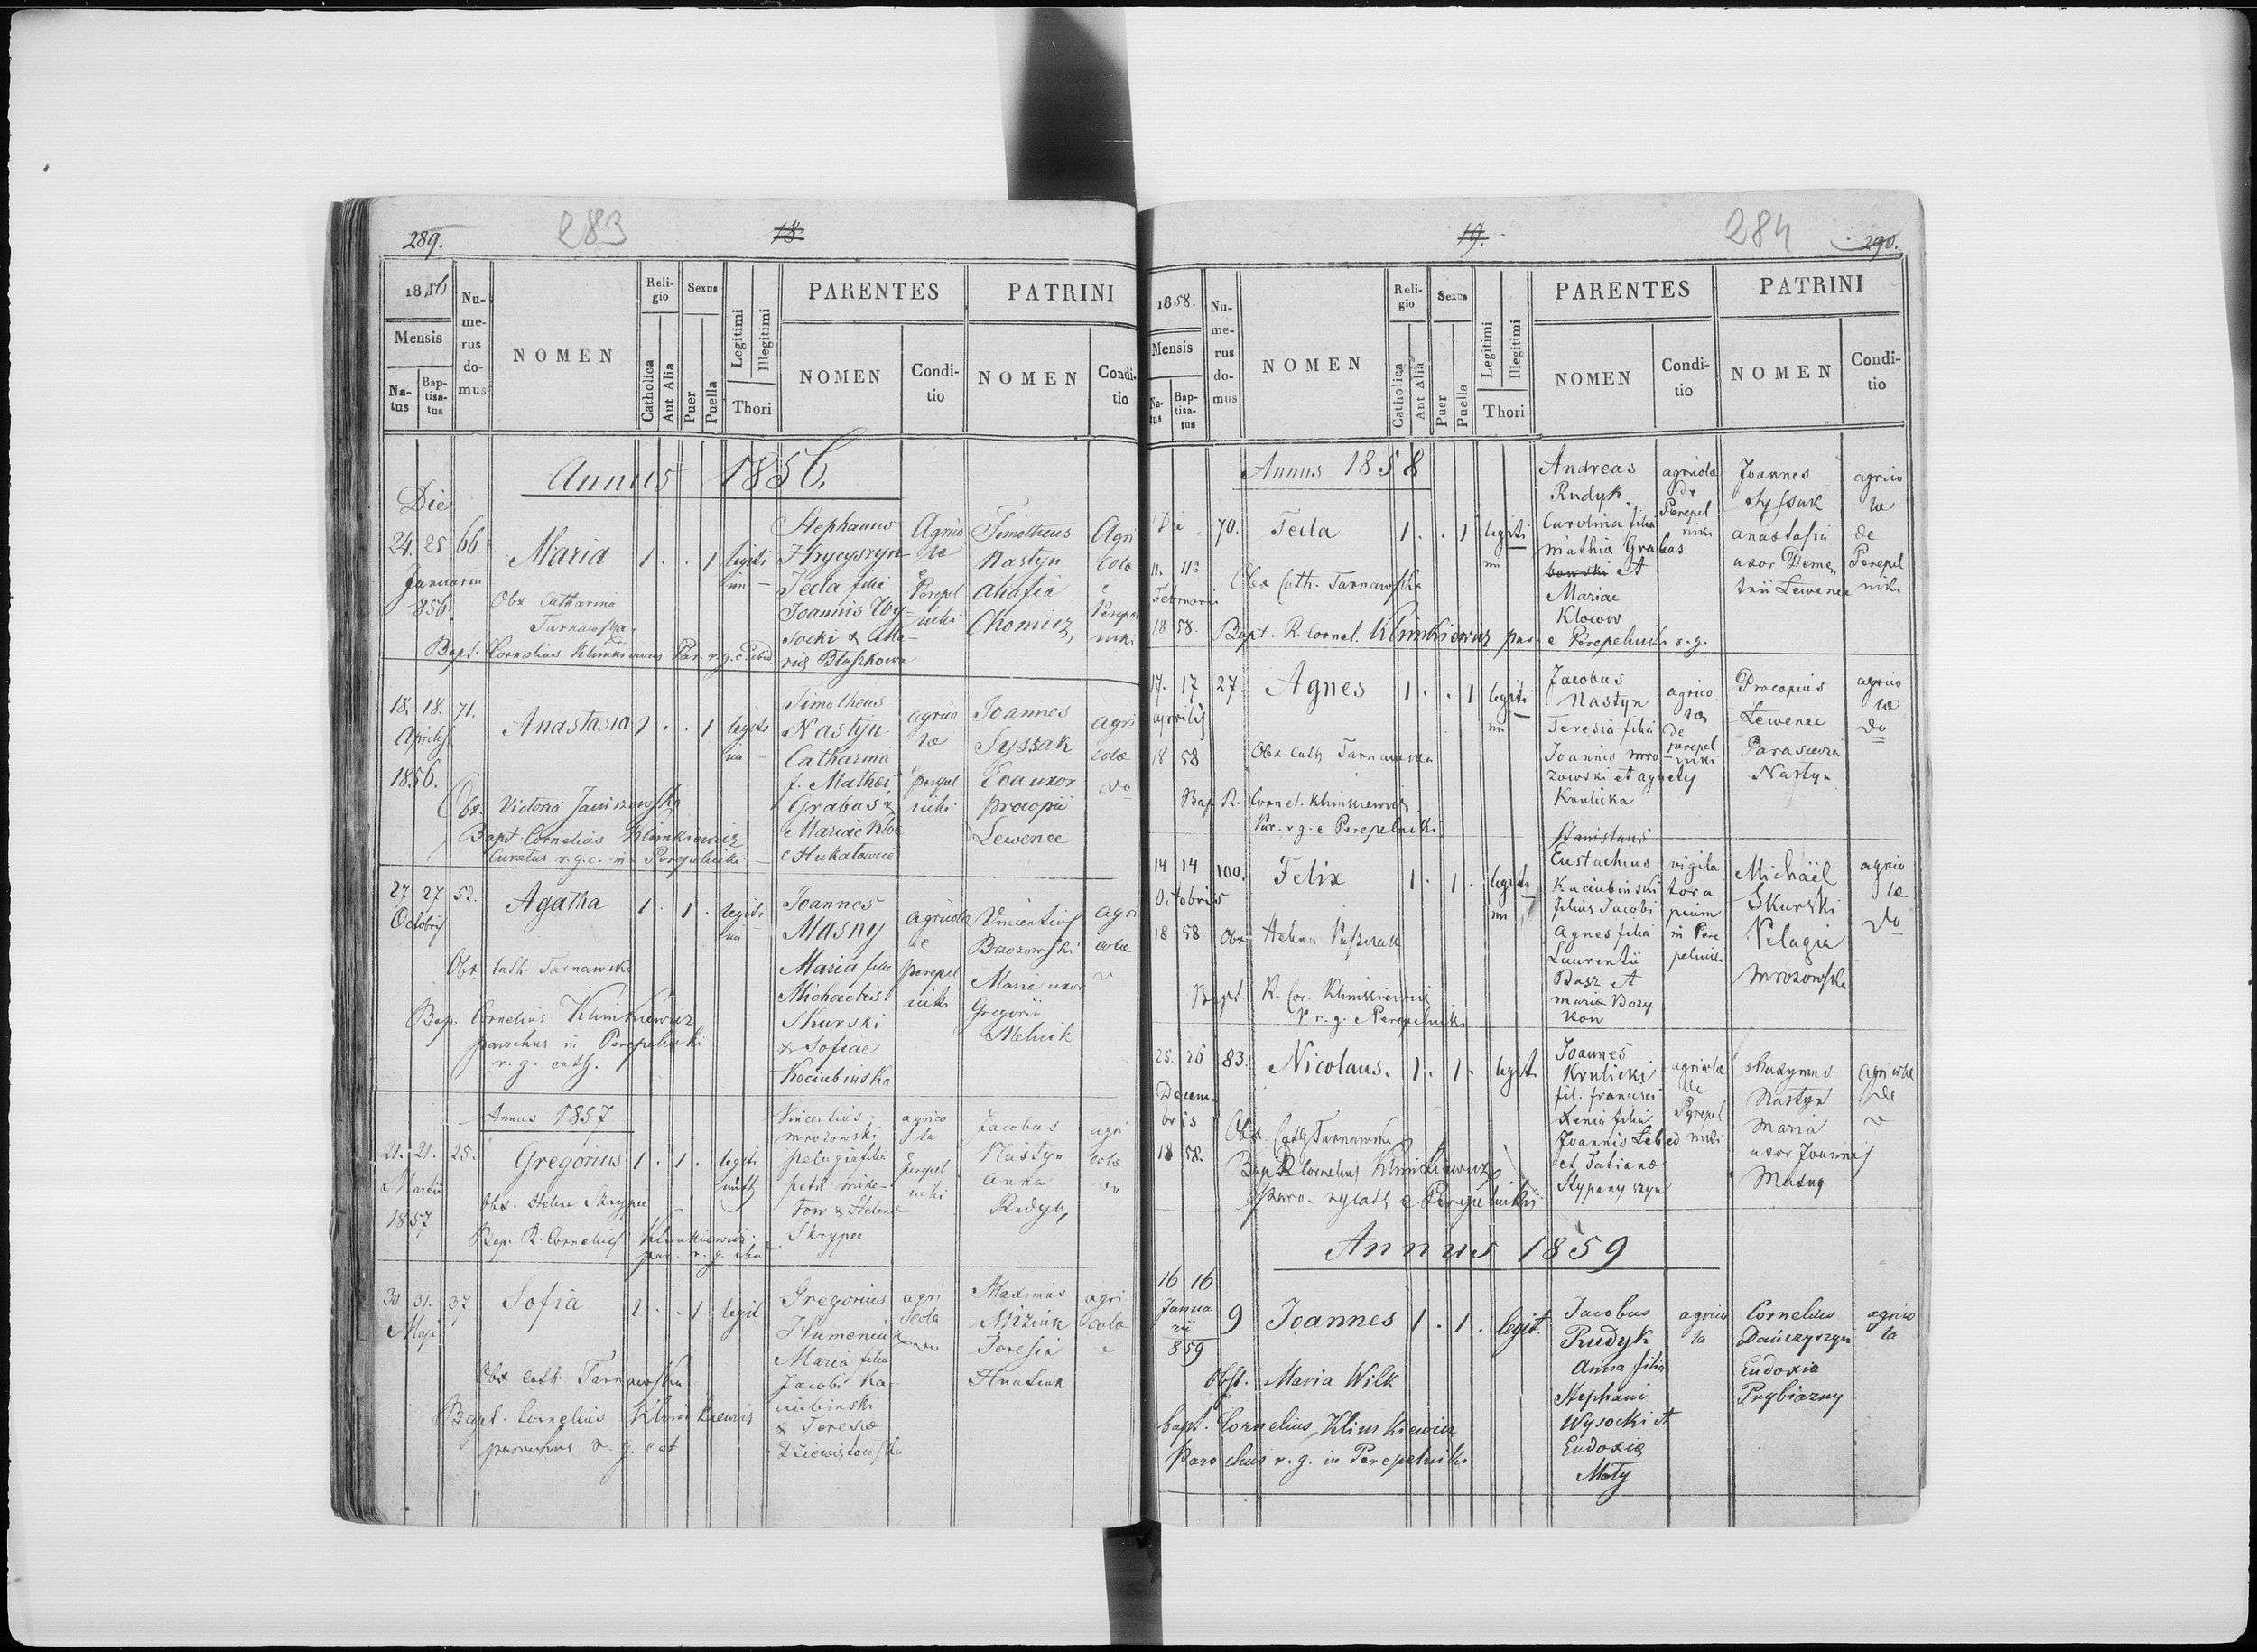 289.
283
18
1856
Mensis
Na-
tus
Bap-
tisa-
tus
Nu-
me-
rus
do-
mus
NOMEN
Reli-
gio
Catholica
Aut Alia
Sexus
Puer
Puella
Legitimi
Illegitimi
Thori
PARENTES
NOMEN
Condi-
tio
PATRINI
NOMEN
Condi-
tio
Annus 1856.
Die
24. 25 66. Maria 1 . . 1 legiti
mi
Januarii
856.
Obx Catharina
Tarnawska
Bapt. Cornelius Klimkiewicz Par. r. g. c.
Stephanus
Hrycyszyn
Tecla filia
Joannis Wy-
socki & Ma-
riæ Błaszkowa
Agrico
læ
e
Perepel
niki
Timotheus
Nastyn
Ahafia
Chomicz,
Agri
colæ
e
Perepel
niki
18. 18. 71. Anastasia 1 . . 1 legiti
mi
Aprilis
1856.
Obx. Victoria
Bapt. Cornelius Klimkiewicz
Curatus r. g. c. in Perepelniki
Timotheus
Nastyn
Catharina
f. Mathei
Grabas &
Mariae
agrico
læ
e perepel
niki
Joannes
Syssak
Eva uxor
procopii
Lewenec
agri
colæ
do
27 27 52. Agatha 1 . 1 . legiti
mi
Octobris
Obx Cath. Tarnawska
Bap. Cornelius Klimkiewicz
parochus in Perepelniki
r. g. cath.
Joannes
Masny
Maria filia
Michaelis
Skurski
& Sofiae
Kociubinska
agricolæ
de
perepel
niki
Vincentius
Brzozowski
Maria uxor
Gregorii
Melnik
agri
colæ
Annus 1857
21. 21. 25. Gregorius 1 . 1 . legiti
Martii
1857
Obx. Helena Skrypec
Bap. R. Cornelius Klimkiewicz
par. r. g.
Vincentius
mrozowski
pelagia filia
petri miko-
tow & Helenæ
Skrypec
agrico
la
e
perepel
niki
Jacobus
Nastyn
Anna
Rudyk,
agri
colæ
do
30 31. 37 Sofia 1 . . 1 legit
Maji
Obx Cath. Tarnawska
Bapt. Cornelius Klimkiewicz
parochus r. g. cat
Gregorius
Humeniuk
Maria filia
Jacobi Ka-
ciubinski
& Teresiæ
agri
cola
Maximus
Miziuk
Teresia
Hnatiuk
agri
colæ
19.
284
290.
1858.
Mensis
Na-
tus
Bap-
tisa-
tus
Nu-
me-
rus
do-
mus
NOMEN
Reli-
gio
Catholica
Aut Alia
Sexus
Puer
Puella
Legitimi
Illegitimi
Thori
PARENTES
NOMEN
Condi-
tio
PATRINI
NOMEN
Condi-
tio
Annus 1858
Die 70. Tecla 1 . . 1 legiti
mi
11. 11
Februarii
1858.
Obx Cath. Tarnawska
Bapt. R. Cornel. Klimkiewicz par. e Perepelniki r. g.
Andreas
Rudyk.
Carolina filia
mathia Grabas
bowski et
Mariae
Klocow
agricolæ
de
Perepel
niki
Joannes
Syssak
anastasia
uxor Deme,
trii Lewenec
agrico
læ
de
Perepel
niki
17. 17 27. Agnes 1 . . 1 legiti
mi
aprilis
1858
Obx Cath Tarnawska
Bap R. Cornel. Klimkiewicz
Par. r g. e Perepelniki
Jacobus
Nastyn
Teresia filia
Joannis mro-
zowski et agnetis
Krulicka
agrico
læ
de
perepel
niki
Procopius
Lewenec
Parascevia
Nastyn
agrico
læ
do
14 14 100. Felix 1 . 1 . legiti
mi
Octobris
1858
Obx Helena
Bapt. R. Cor. Klimkiewicz
P r. g. e Perepelniki
Stanislaus
Eustachius
Kaciubinski
filius Jacobi
Agnes filia
Laurentii
Basz et
mariæ Bozy
kow
vigila
tor a
pium
in Pere
pelniki
Michaël
Skurski
Pelagia
mrozowska
agrico
læ
do
25. 26 83. Nicolaus. 1 . 1 . legit.
Decem-
bris
1858.
Obx. Cath Tarnawska
Bap R Cornelius Klimkiewicz
Paro. r g cath e Perepelniki
Joannes
Krulicki
fil. francisci
Xenia filia
Joannis Lebed
et Tatianæ
Stypanyszyn
agricolæ
de
Perepel
niki
Maxymus
Nastyn
Maria
uxor Joannis
Masny
agricolæ
de
Annus 1859
16 16
Janua
rii
859
9 Joannes 1 . 1 . legit.
Obst. Maria Wilk
bapt. Cornelius Klimkiewicz
Parochus r. g. in Perepelniki
Jacobus
Rudyk
Anna filia
Stephani
Wysocki et
Eudoxiæ
Mały
agrico
la
Cornelius
Dańczyszyn
Eudoxia
Prybiazny
agrico
la